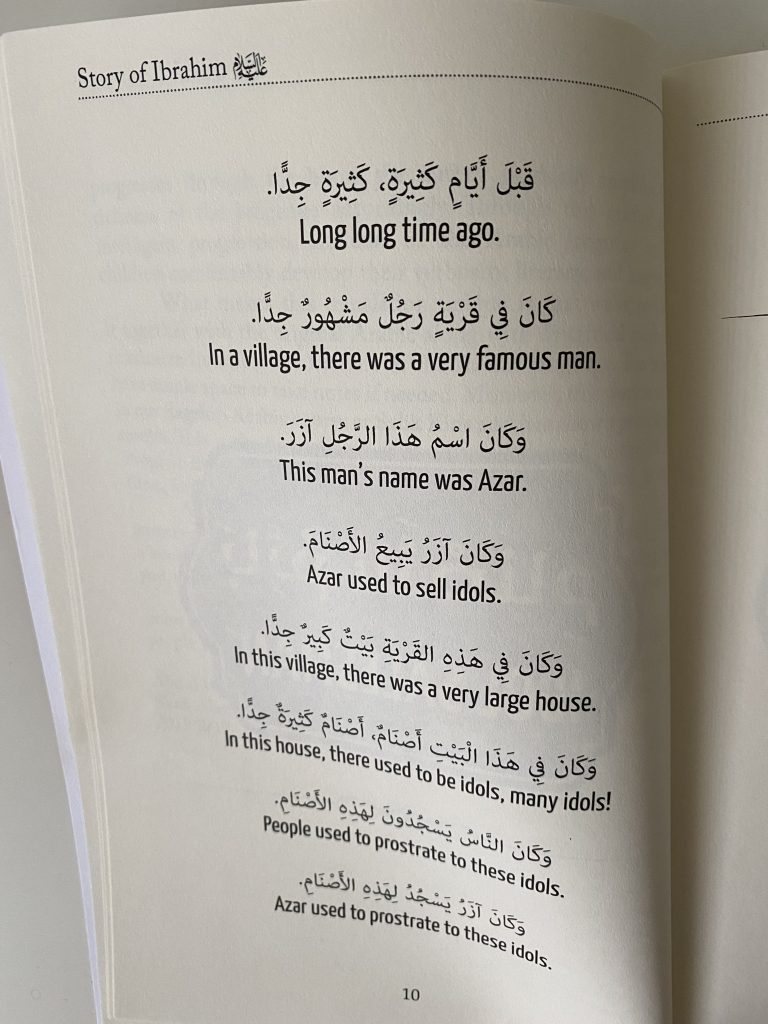 Story of Ibrahim عليه السلام
قَبْلَ أَيَّامٍ كَثِيرَةٍ، كَثِيرَةٍ جِدًّا.
Long long time ago.
كَانَ فِي قَرْيَةٍ رَجُلٌ مَشْهُورٌ جِدًّا.
In a village, there was a very famous man.
وَكَانَ اسْمُ هَذَا الرَّجُلِ آزَرَ.
This man’s name was Azar.
وَكَانَ آزَرُ يَبِيعُ الأَصْنَامَ.
Azar used to sell idols.
وَكَانَ فِي هَذِهِ القَرْيَةِ بَيْتٌ كَبِيرٌ جِدًّا.
In this village, there was a very large house.
وَكَانَ فِي هَذَا الْبَيْتِ أَصْنَامٌ، أَصْنَامٌ كَثِيرَةٌ جِدًّا.
In this house, there used to be idols, many idols!
وَكَانَ النَّاسُ يَسْجُدُونَ لِهَذِهِ الأَصْنَامِ.
People used to prostrate to these idols.
وَكَانَ آزَرُ يَسْجُدُ لِهَذِهِ الأَصْنَامِ.
Azar used to prostrate to these idols.
10